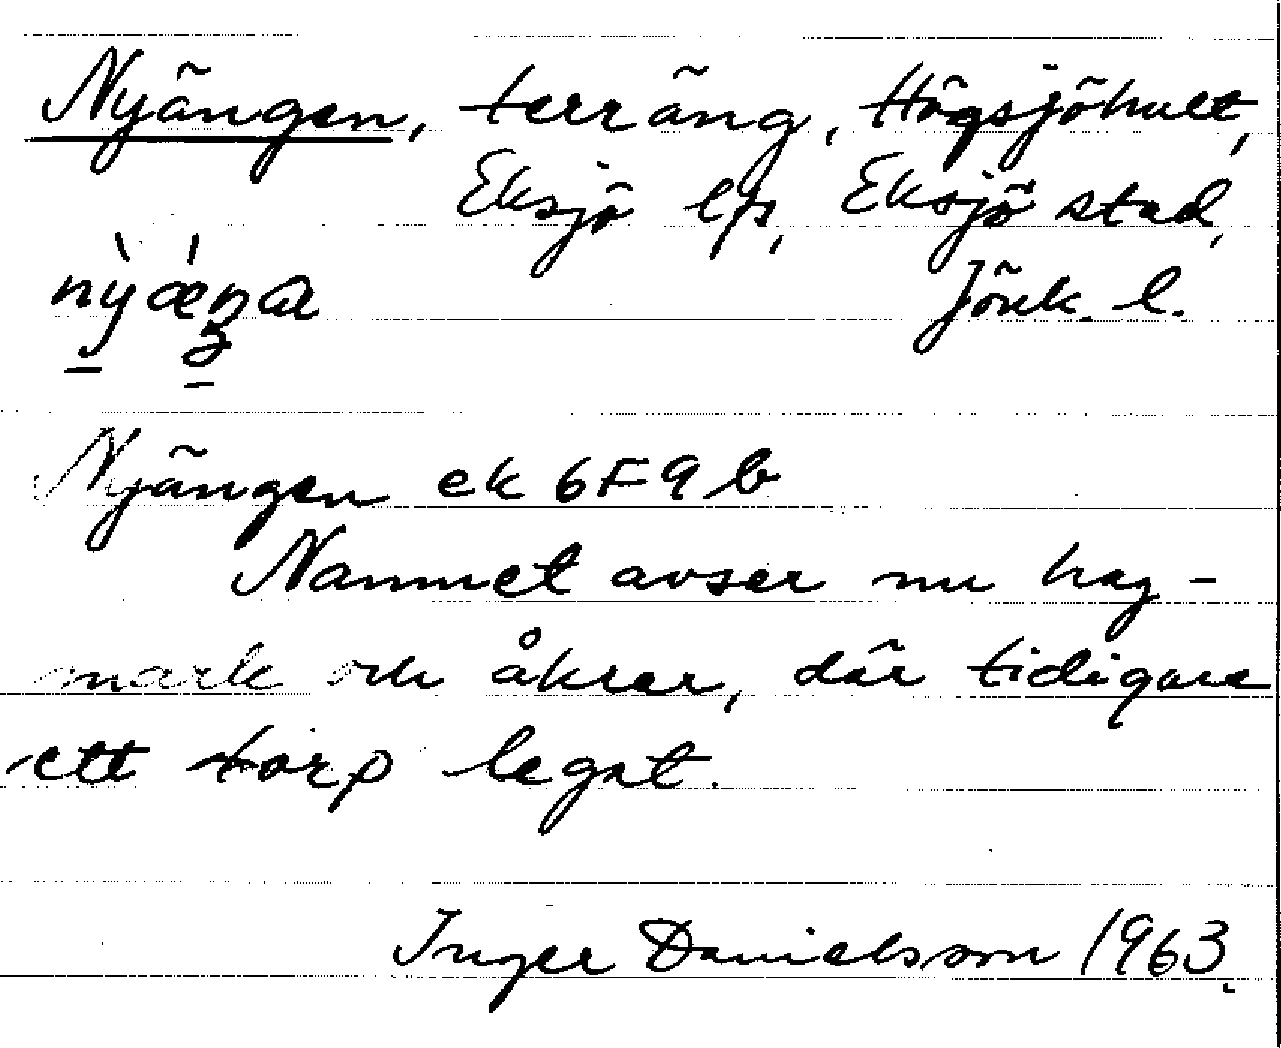 Nyängen, terräng, Högsjöhult,
Eksjö lfs, Eksjö stad,
Jönk. l.
Nyängen ek 6F9b
Namnet avser nu hag-
mark och åkrar, där tidigare
ett torp legat.
Inger Danielsson 1963.